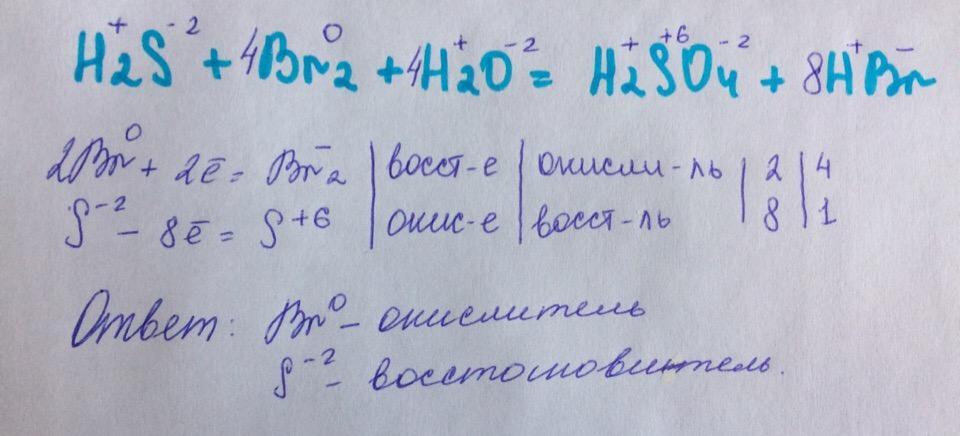 H₂⁺S⁻² + 4Br₂⁰ + 4H₂⁺O⁻² = H₂⁺S⁺⁶O₄⁻² + 8H⁺Br⁻
2Br⁰ + 2ē = Br₂⁻ | восст-е | окисли-ль | 2 | 4
S⁻² - 8ē = S⁺⁶ | окис-е | восст-ль | 8 | 1
Ответ: Br⁰ - окислитель
S⁻² - восстоновитель.